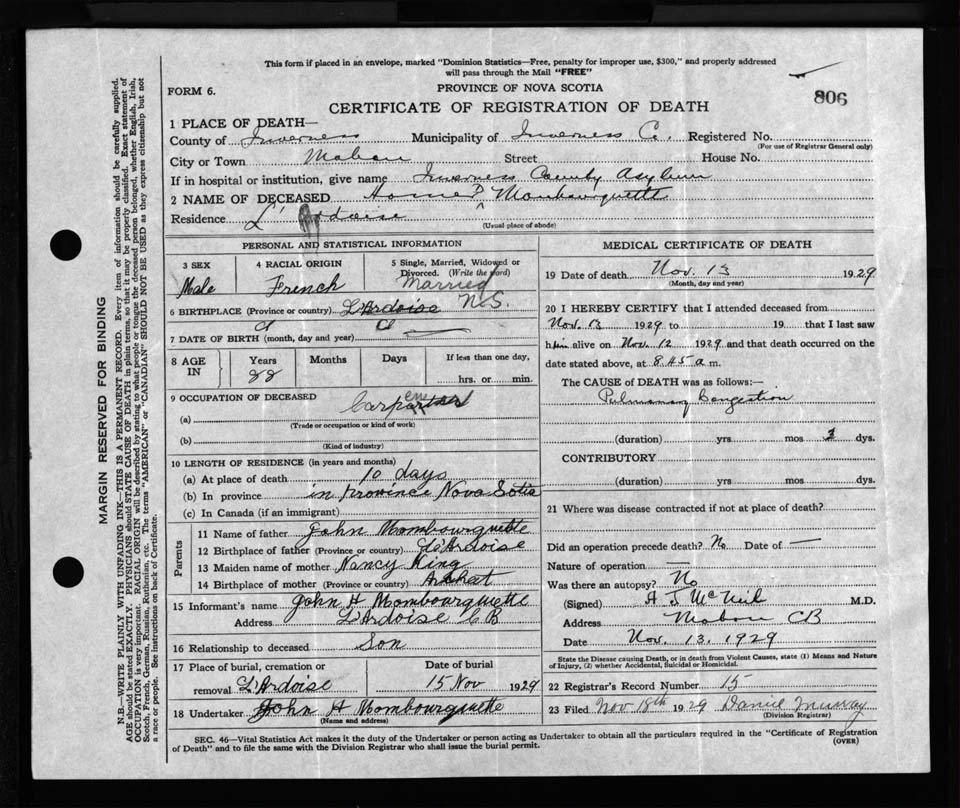 This form if placed in an envelope, marked "Dominion Statistics—Free, penalty for improper use, $300," and properly addressed
will pass through the Mail "FREE"
FORM 6.
PROVINCE OF NOVA SCOTIA
806
CERTIFICATE OF REGISTRATION OF DEATH
1 PLACE OF DEATH—
County of Inverness Municipality of Inverness Co. Registered No.
(For use of Registrar General only)
City or Town Mabou Street House No.
If in hospital or institution, give name Inverness County Asylum
2 NAME OF DECEASED P Mombourquette
Residence L'Ardoise
(Usual place of abode)
PERSONAL AND STATISTICAL INFORMATION
3 SEX
Male
4 RACIAL ORIGIN
French
5 Single, Married, Widowed or
Divorced. (Write the word)
Married
6 BIRTHPLACE (Province or country) L'Ardoise N.S.
7 DATE OF BIRTH (month, day and year)
8 AGE
IN
Years
88
Months
Days
If less than one day,
hrs. or min.
9 OCCUPATION OF DECEASED
(a) Carpenter
(Trade or occupation or kind of work)
(b)
(Kind of industry)
10 LENGTH OF RESIDENCE (in years and months)
(a) At place of death 10 days
(b) In province in province Nova Sotia
(c) In Canada (if an immigrant)
Parents
11 Name of father John Mombourquette
12 Birthplace of father (Province or country) L'Ardoise
13 Maiden name of mother Nancy King
14 Birthplace of mother (Province or country) Arichat
15 Informant's name John H Mombourquette
Address L'Ardoise C B
16 Relationship to deceased Son
17 Place of burial, cremation or
removal L'Ardoise
Date of burial
15 Nov 1929
18 Undertaker John H Mombourquette
(Name and address)
MEDICAL CERTIFICATE OF DEATH
19 Date of death Nov. 13 1929
(Month, day and year)
20 I HEREBY CERTIFY that I attended deceased from
Nov. 13 1929 to 19 that I last saw
him alive on Nov. 12 1929 and that death occurred on the
date stated above, at 8.45 a m.
The CAUSE OF DEATH was as follows:—
Pulmonary Congestion
(duration) yrs mos dys.
CONTRIBUTORY
(duration) yrs mos dys.
21 Where was disease contracted if not at place of death?
Did an operation precede death? No Date of —
Nature of operation —
Was there an autopsy? No
(Signed) A J McNeil M.D.
Address Mabou CB
Date Nov. 13. 1929
State the Disease causing Death, or in death from Violent Causes, state (1) Means and Nature
of Injury, (2) whether Accidental, Suicidal or Homicidal.
22 Registrar's Record Number 15
23 Filed Nov 18th 1929 Daniel Murray
(Division Registrar)
SEC. 46—Vital Statistics Act makes it the duty of the Undertaker or person acting as Undertaker to obtain all the particulars required in the "Certificate of Registration
of Death" and to file the same with the Division Registrar who shall issue the burial permit.
(OVER)
MARGIN RESERVED FOR BINDING
N.B.—WRITE PLAINLY WITH UNFADING INK—THIS IS A PERMANENT RECORD. Every item of information should be carefully supplied.
AGE should be stated EXACTLY. PHYSICIANS should STATE CAUSE OF DEATH in plain terms, so that it may be properly classified. Exact statement of
OCCUPATION is very important. RACIAL ORIGIN will be described by stating to what people or tongue the deceased person belonged, whether English, Irish,
Scotch, French, German, Russian, Ruthenian, etc. The terms "AMERICAN" or "CANADIAN" SHOULD NOT BE USED as they express citizenship but not
a race or people. See instructions on back of Certificate.